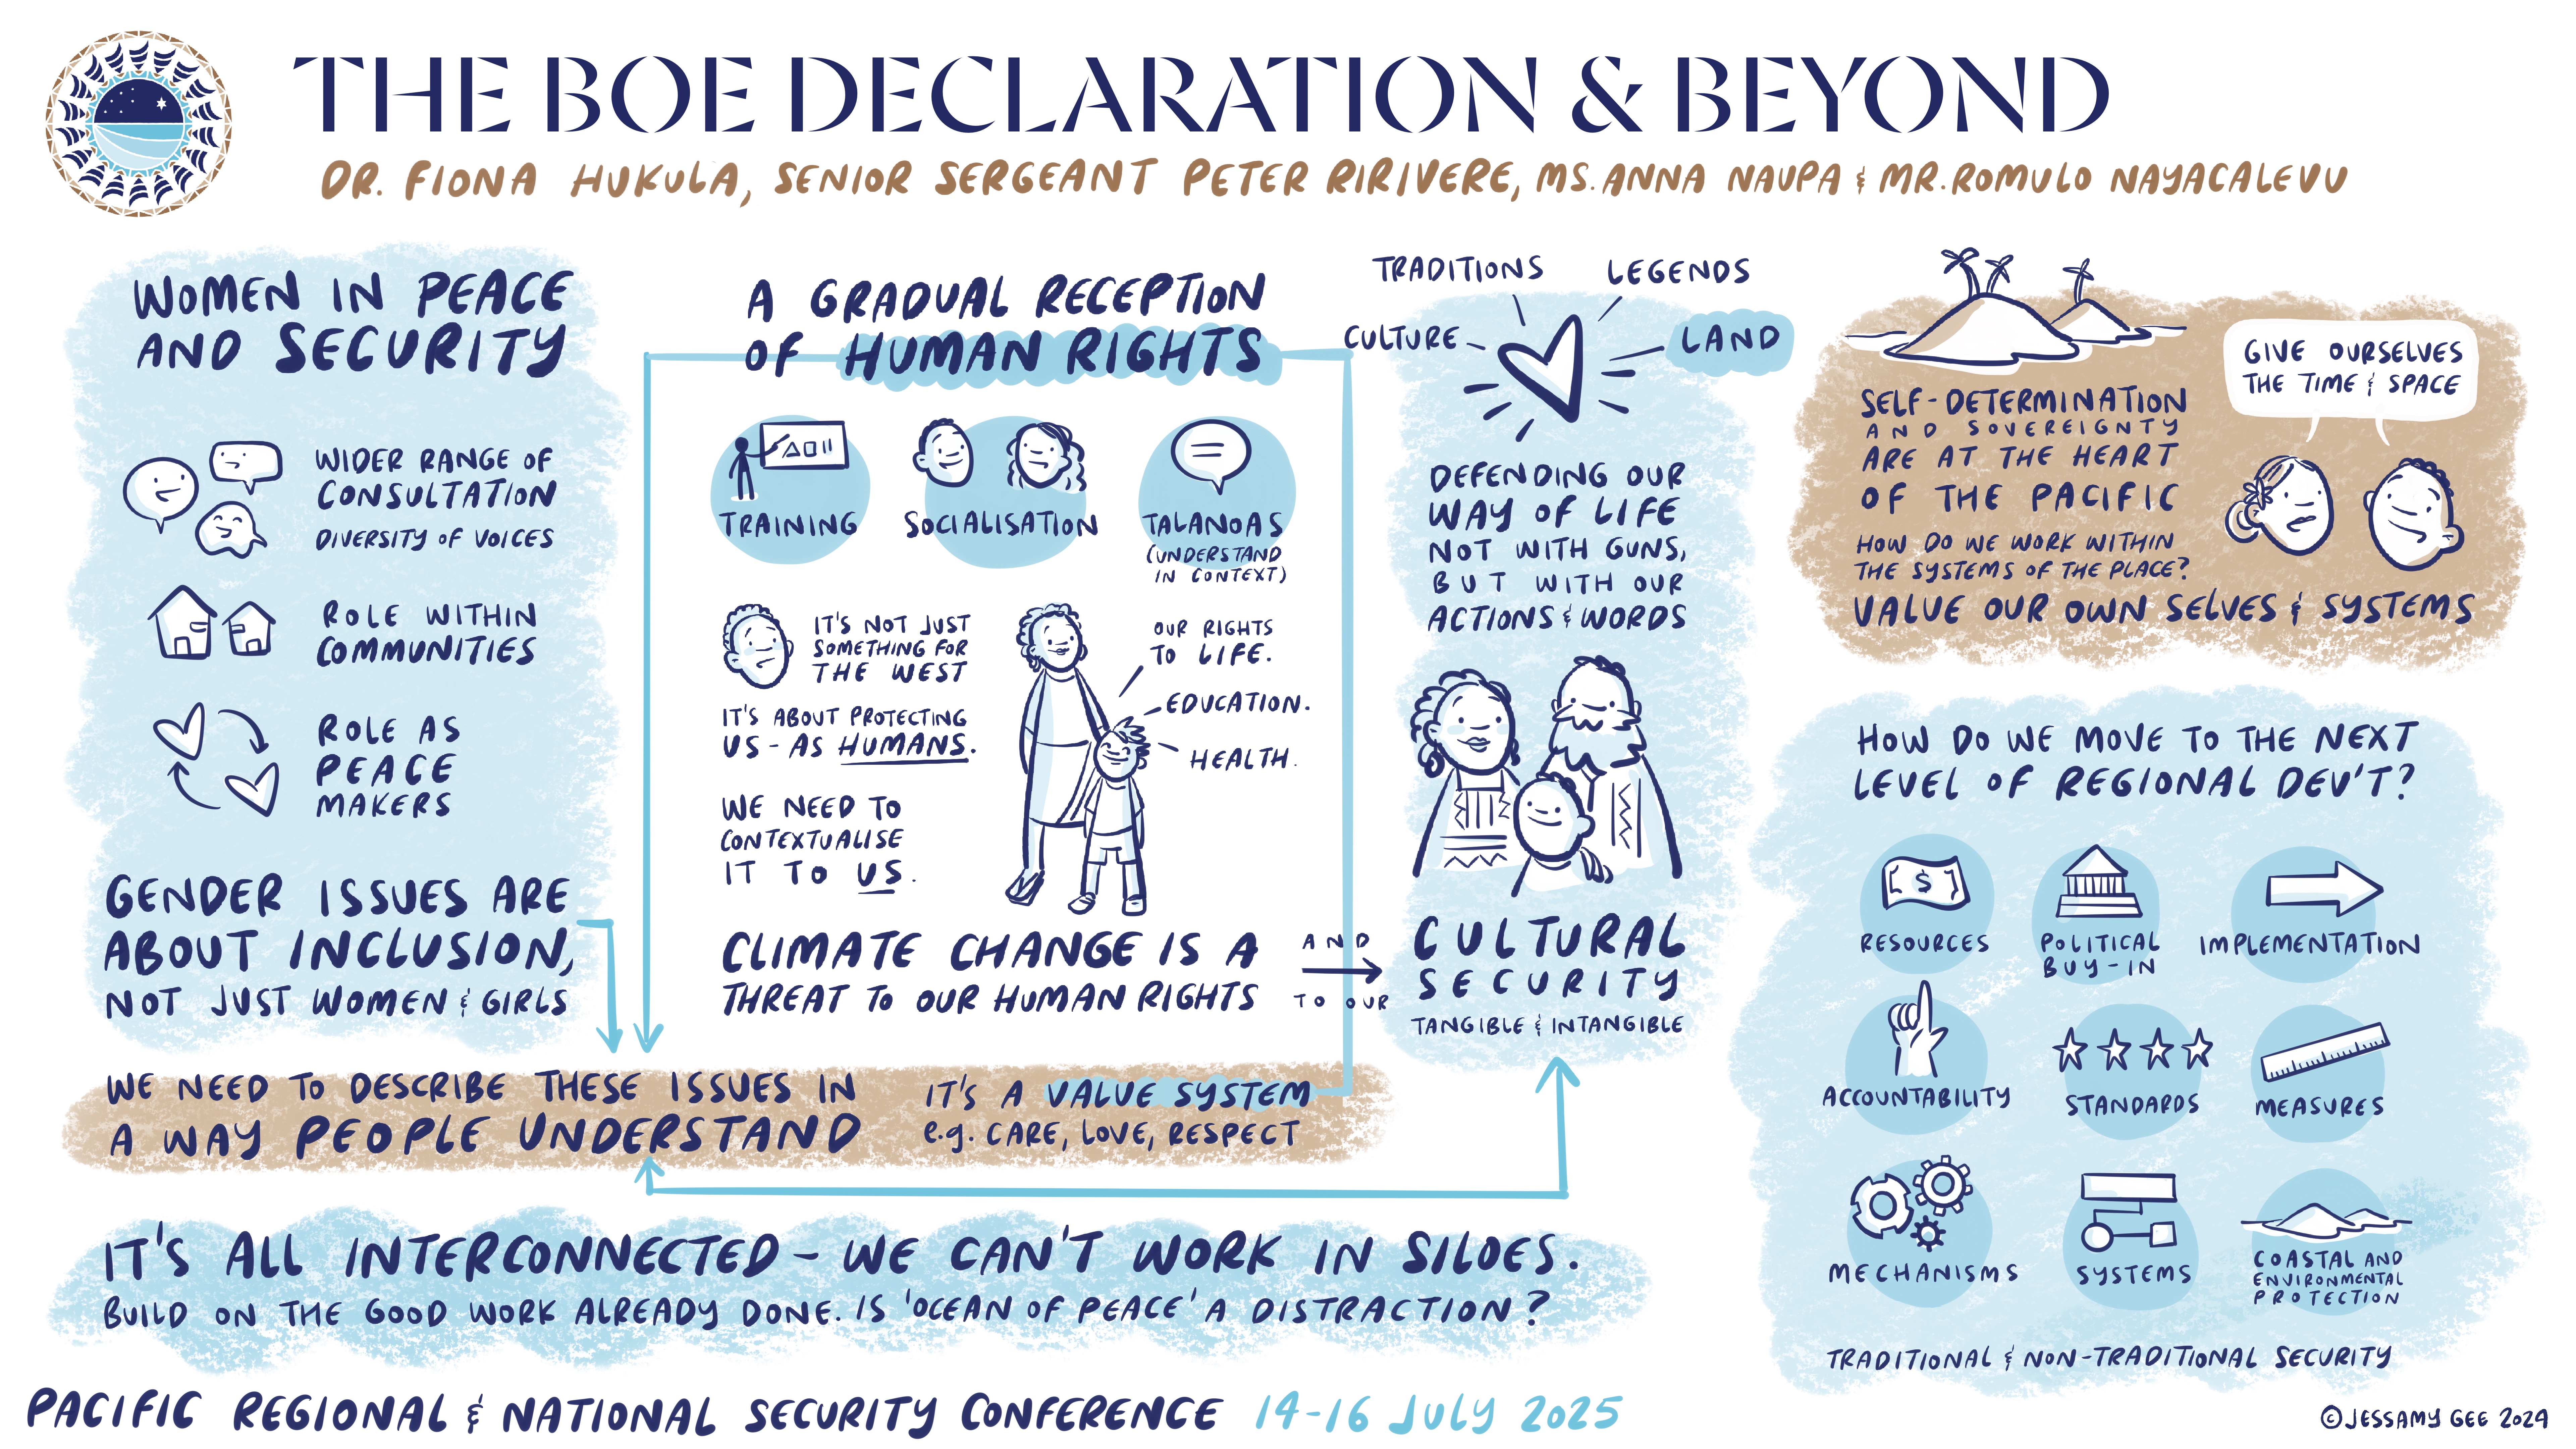 THE BOE DECLARATION & BEYOND
DR. FIONA HUKULA, SENIOR SERGEANT PETER RIRIVERE, MS. ANNA NAUPA & MR. ROMULO NAYACALEVU
WOMEN IN PEACE
AND SECURITY
WIDER RANGE OF
CONSULTATION
DIVERSITY OF VOICES
ROLE WITHIN
COMMUNITIES
ROLE AS
PEACE
MAKERS
GENDER ISSUES ARE
ABOUT INCLUSION,
NOT JUST WOMEN & GIRLS
A GRADUAL RECEPTION
OF HUMAN RIGHTS
TRAINING
SOCIALISATION
TALANOAS
(UNDERSTAND
IN CONTEXT)
IT'S NOT JUST
SOMETHING FOR
THE WEST
IT'S ABOUT PROTECTING
US - AS HUMANS.
WE NEED TO
CONTEXTUALISE
IT TO US.
OUR RIGHTS
TO LIFE.
EDUCATION.
HEALTH.
CLIMATE CHANGE IS A
THREAT TO OUR HUMAN RIGHTS
AND
TO OUR
TRADITIONS
LEGENDS
CULTURE
LAND
DEFENDING OUR
WAY OF LIFE
NOT WITH GUNS,
BUT WITH OUR
ACTIONS & WORDS
CULTURAL
SECURITY
TANGIBLE & INTANGIBLE
WE NEED TO DESCRIBE THESE ISSUES IN
A WAY PEOPLE UNDERSTAND
IT'S A VALUE SYSTEM
e.g. CARE, LOVE, RESPECT
IT'S ALL INTERCONNECTED - WE CAN'T WORK IN SILOES.
BUILD ON THE GOOD WORK ALREADY DONE. IS 'OCEAN OF PEACE' A DISTRACTION?
SELF-DETERMINATION
AND SOVEREIGNTY
ARE AT THE HEART
OF THE PACIFIC
HOW DO WE WORK WITHIN
THE SYSTEMS OF THE PLACE?
VALUE OUR OWN SELVES & SYSTEMS
GIVE OURSELVES
THE TIME & SPACE
HOW DO WE MOVE TO THE NEXT
LEVEL OF REGIONAL DEV'T?
$
RESOURCES
POLITICAL
BUY-IN
IMPLEMENTATION
ACCOUNTABILITY
STANDARDS
MEASURES
MECHANISMS
SYSTEMS
COASTAL AND
ENVIRONMENTAL
PROTECTION
TRADITIONAL & NON-TRADITIONAL SECURITY
PACIFIC REGIONAL & NATIONAL SECURITY CONFERENCE 14-16 JULY 2025
© JESSAMY GEE 2024